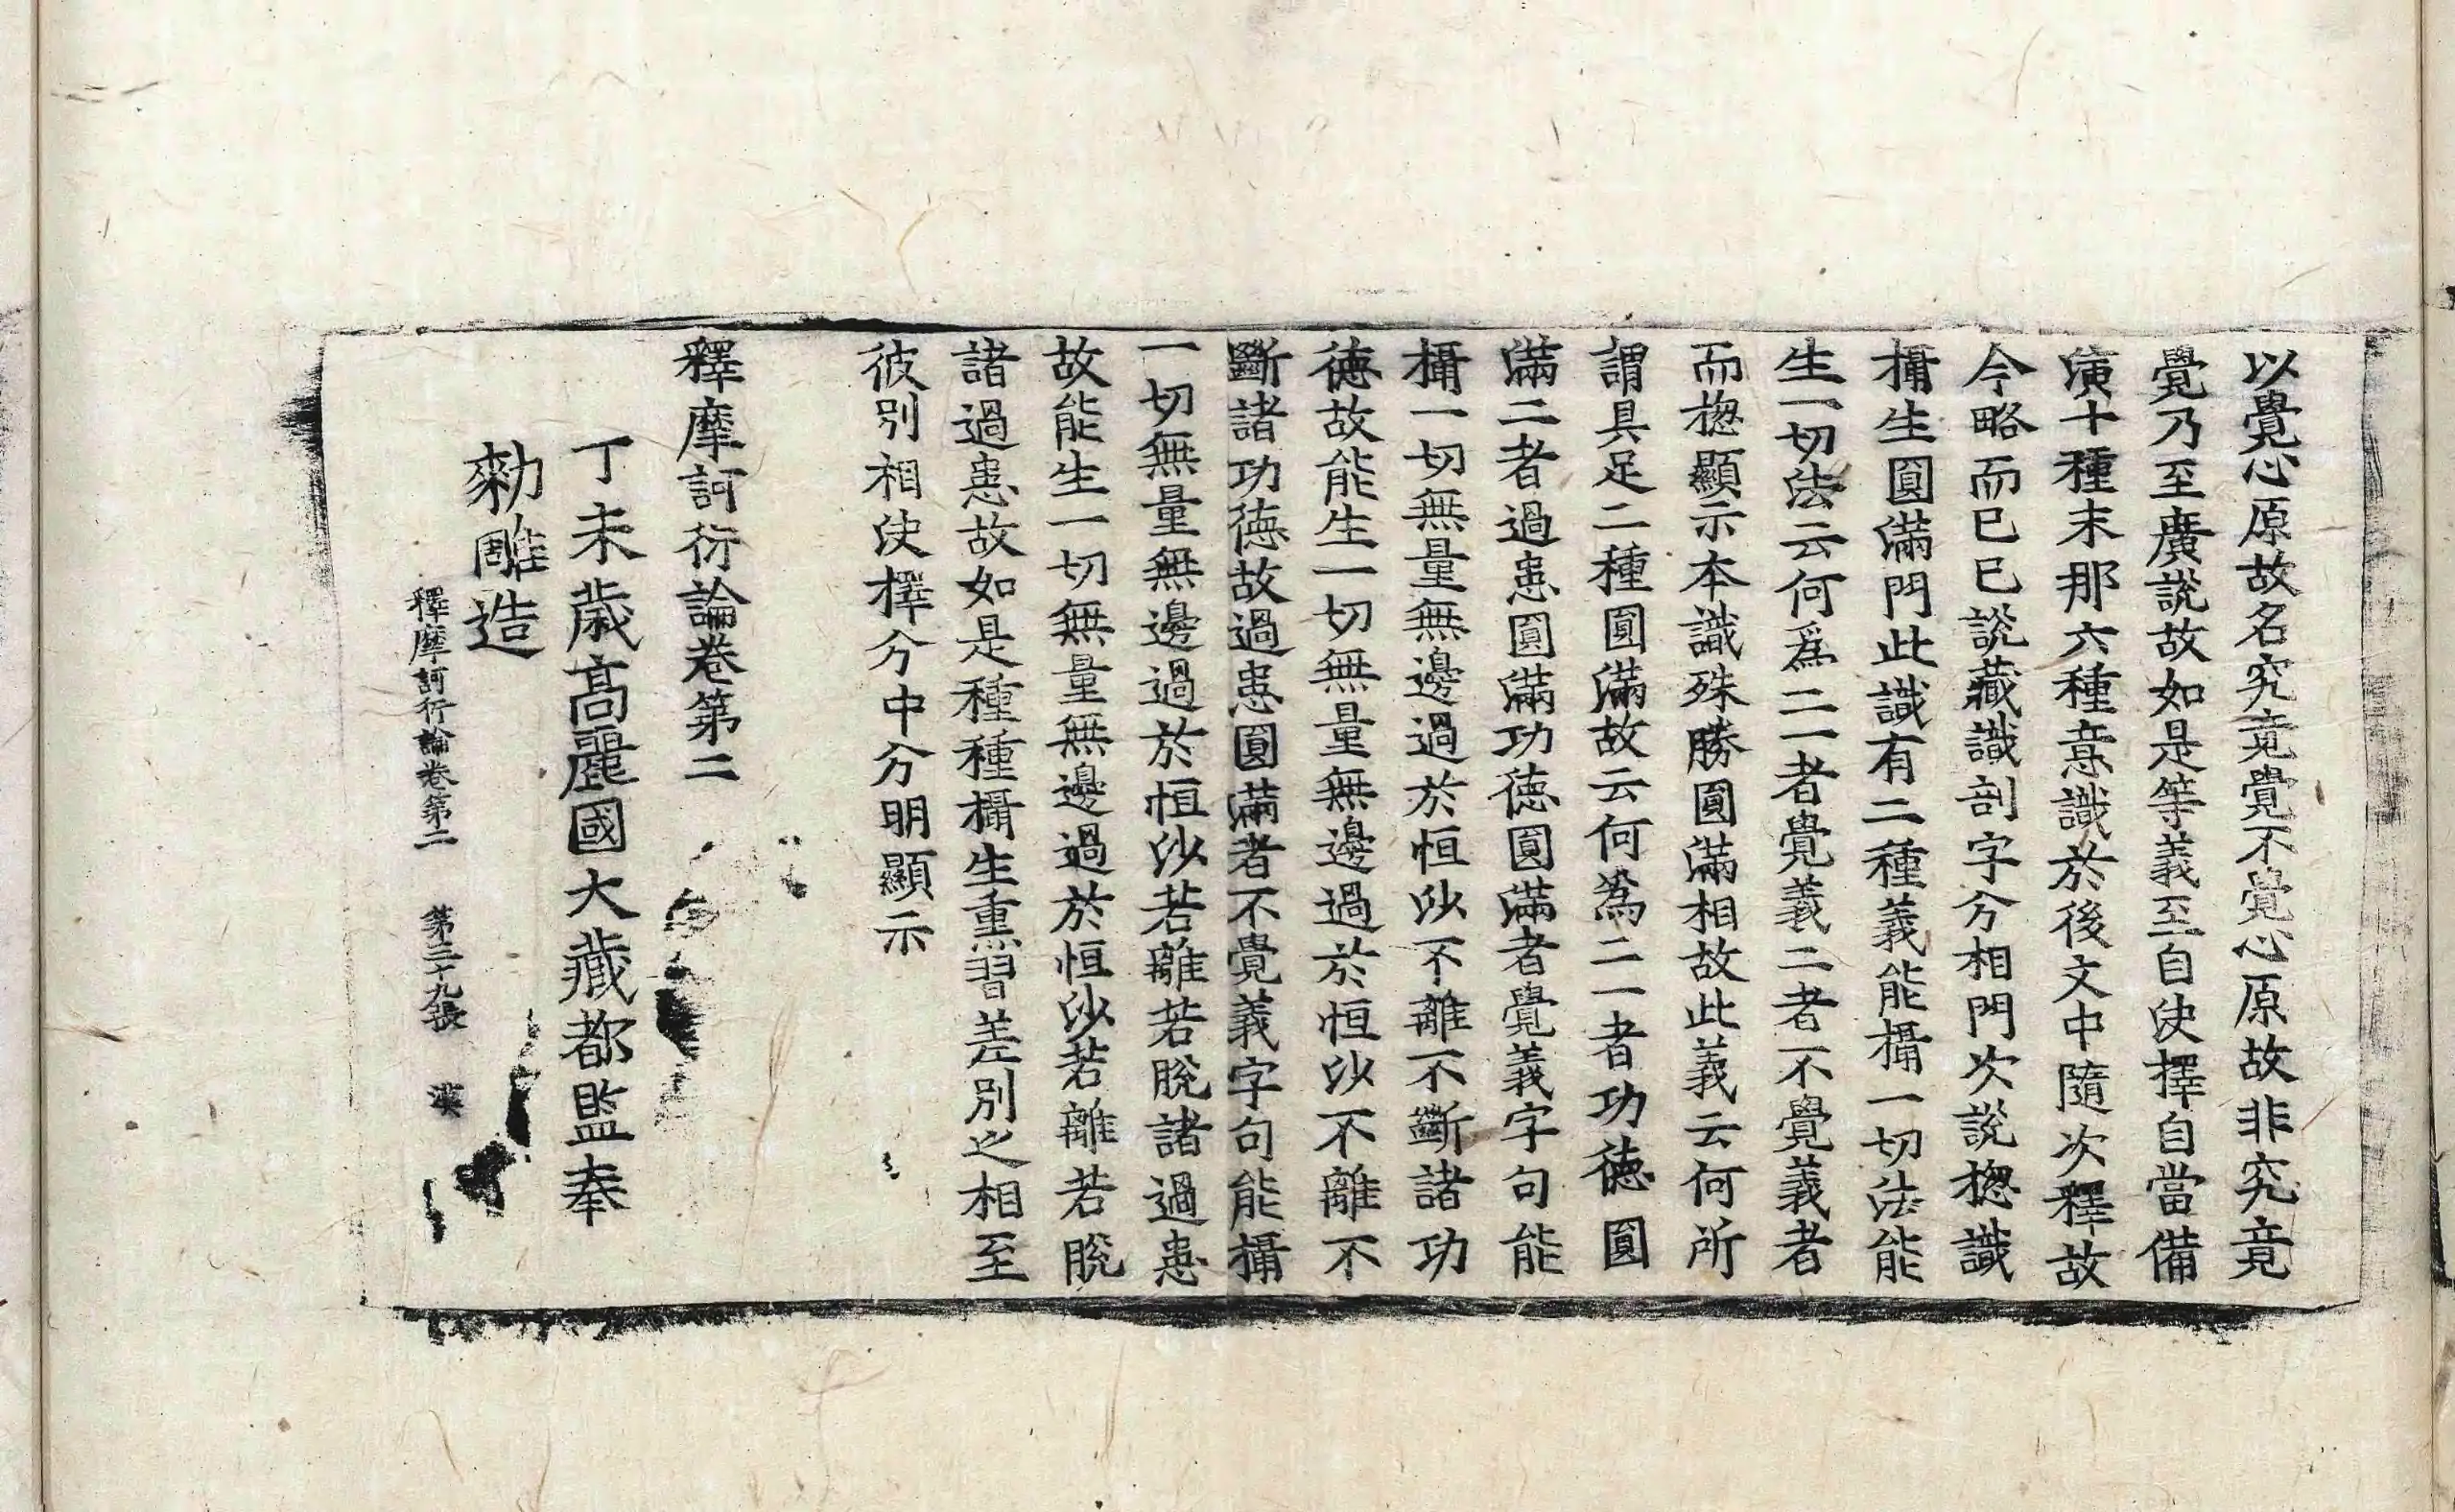 以覺心原故名究竟覺不覺心原故非究竟
覺乃至廣說故如是等義至自決擇自當備
演十種末那六種意識於後文中隨次釋故
今略而已已說藏識剖字分相門次說揔識
攝生圓滿門此識有二種義能攝一切法能
生一切法云何爲二一者覺義二者不覺義者
而揔顯示本識殊勝圓滿相故此義云何所
謂具足二種圓滿故云何爲二一者功德圓
滿二者過患圓滿功德圓滿者覺義字句能
攝一切無量無邊過於恒沙不離不斷諸功
德故能生一切無量無邊過於恒沙不離不
斷諸功德故過患圓滿者不覺義字句能攝
一切無量無邊過於恒沙若離若脫諸過患
故能生一切無量無邊過於恒沙若離若脫
諸過患故如是種種攝生熏習差別之相至
彼別相決擇分中分明顯示
釋摩訶衍論卷第二
丁未歲高麗國大藏都監奉
勑雕造
釋摩訶衍論卷第二 第三十九張 漢